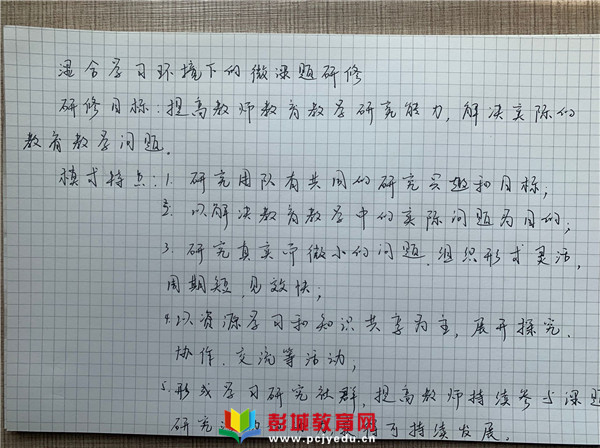 混合学习环境下的微课题研修
研修目标:提高教师教育教学研究能力,解决实际的
教育教学问题。
模式特点:1. 研究团队有共同的研究兴趣和目标;
2. 以解决教育教学中的实际问题为目的;
3. 研究真实而微小的问题,组织形式灵活,
周期短,见效快;
4. 以资源学习和知识共享为主,展开探究、
协作、交流等活动;
5. 形成学习研究社群,提高教师持续参与课题
研究 可持续发展。
彭城教育网
www.pcjyedu.cn